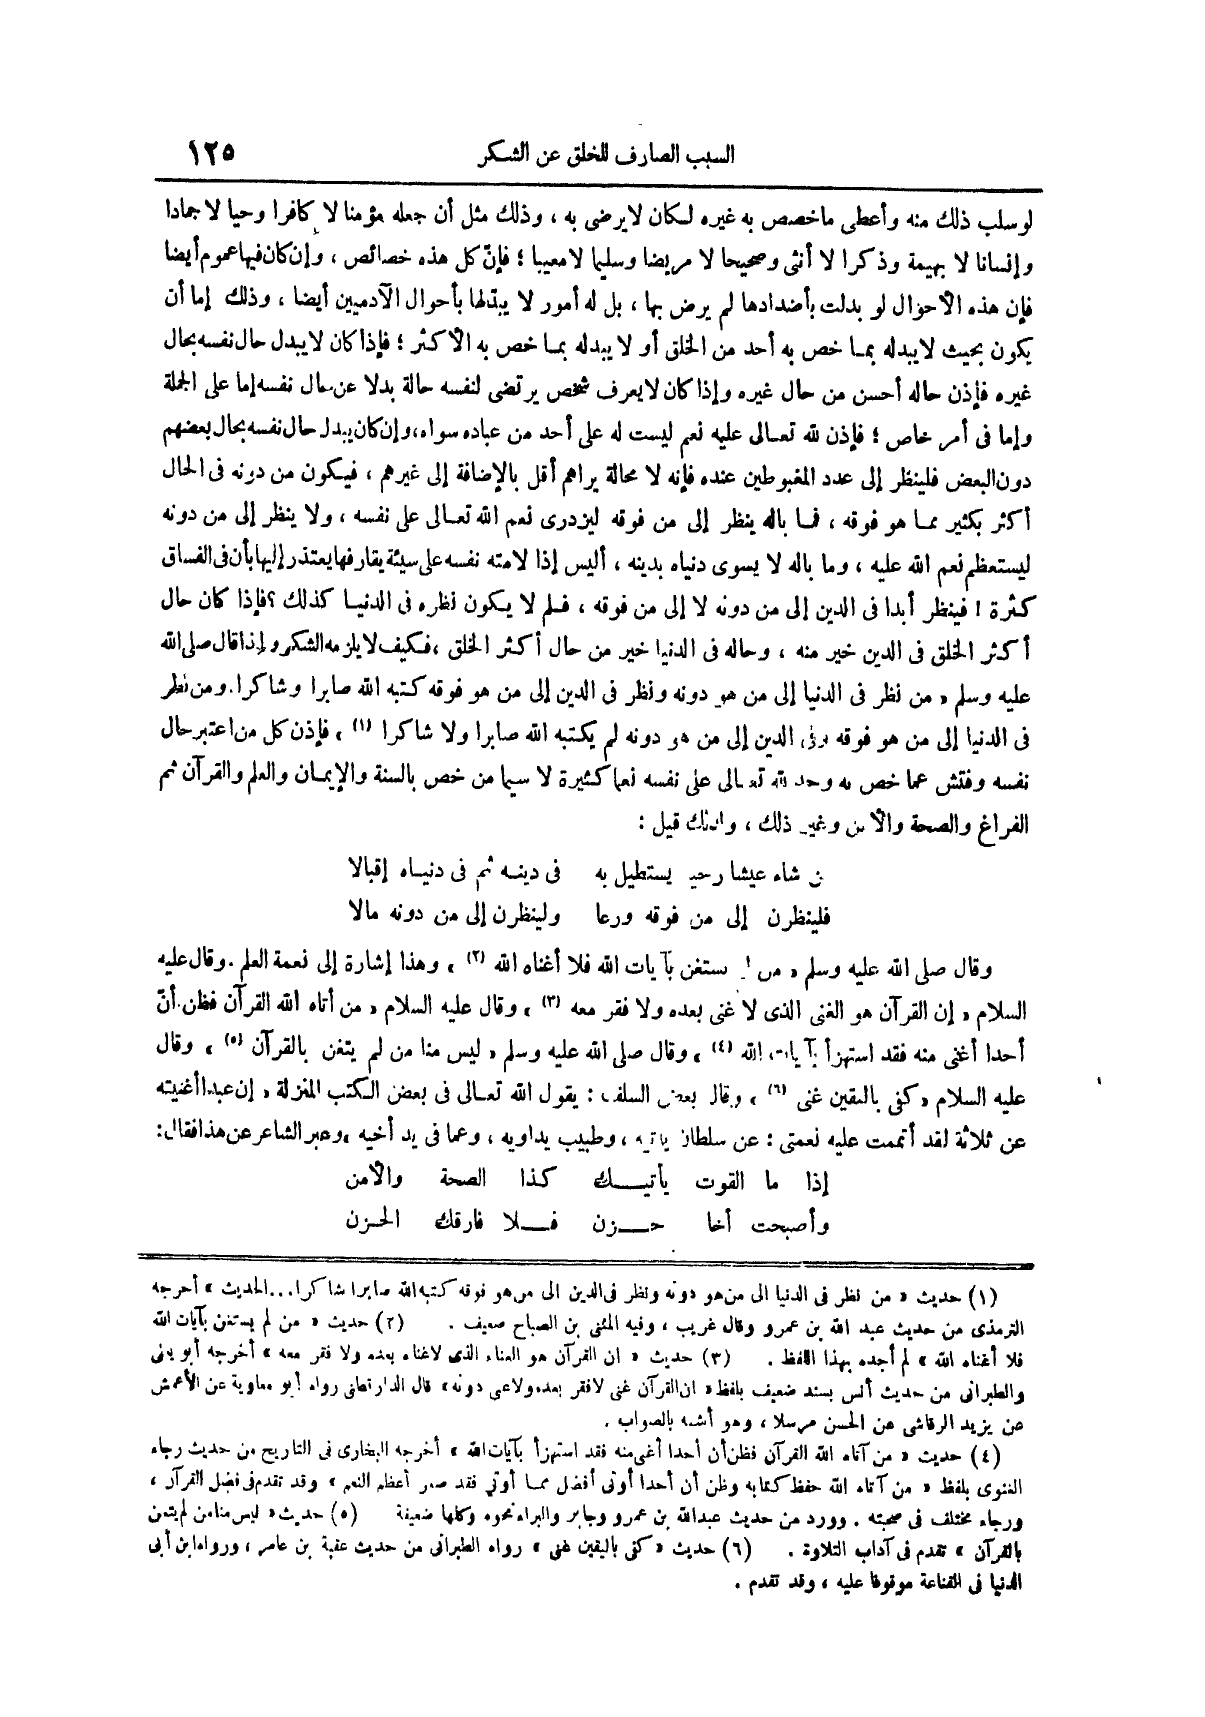 السبب الصارف للخلق عن الشكر
١٢٥
لو سلب ذلك منه وأعطى ماخصص به غيره لكان لا يرضى به ، وذلك مثل أن جعله مؤمنا لا كافرا وحيا لا جمادا
وإنسانا لا بهيمة وذكرا لا أنثى وصحيحا لا مريضا وسليما لا معيبا ؛ فإنّ كل هذه خصائص ، وإن كان فيها عموم أيضا
فإن هذه الأحوال لو بدلت بأضدادها لم يرض بها ، بل له أمور لا يبدلها بأحوال الآدميين أيضا ، وذلك إما أن
يكون بحيث لا يبدله بمـا خص به أحد من الخلق أو لا يبدله بمـا خص به الأكثر ؛ فإذا كان لا يبدل حال نفسه بحال
غيره فإذن حاله أحسن من حال غيره وإذا كان لا يعرف شخص يرتضى لنفسه حالة بدلا عن حال نفسه إما على الجملة
وإما فى أمر خاص ؛ فإذن لله تعـالى عليه نعم ليست له على أحد من عباده سواه، وإن كان يبدل حال نفسه بحال بعضهم
دون البعض فلينظر إلى عدد المغبوطين عنده فإنه لا محالة يراهم أقل بالإضافة إلى غيرهم ، فيـكون من دونه فى الحال
أكثر بكثير ممـا هو فوقه ، فمـا باله ينظر إلى من فوقه ليزدرى نعم الله تعـالى على نفسه ، ولا ينظر إلى من دونه
ليستعظم نعم الله عليه ، وما باله لا يسوى دنياه بدينه ، أليس إذا لامته نفسه على سيئة يقارفها يعتذر إليها بأن فى الفساق
كثرة ! فينظر أبدا فى الدين إلى من دونه لا إلى من فوقه ، فـلم لا يكون نظره فى الدنيـا كذلك ؟ فإذا كان حال
أكثر الخلق فى الدين خير منه ، وحاله فى الدنيا خير من حال أكثر الخلق ، فـكيف لا يلزمه الشكر ولهذا قال صلى الله
عليه وسلم « من نظر فى الدنيا إلى من هو دونه ونظر فى الدين إلى من هو فوقه كتبه الله صابرا وشاكرا. ومن نظر
فى الدنيا إلى من هو فوقه وفى الدين إلى من هو دونه لم يكتبه الله صابرا ولا شاكرا (١) » فإذن كل من اعتبر حال
نفسه وفتش عما خص به وجد لله تعـالى على نفسه نعما كثيرة لا سيما من خص بالسنة والإيمـان والعلم والقرآن ثم
الفراغ والصحة والأمن وغير ذلك ، ولذلك قيل :
من شاء عيشا رحيبا يستطيل به فى دينـه ثم فى دنيـاه إقبالا
فلينظرن إلى من فوقه ورعا ولينظرن إلى من دونه مالا
وقال صلى الله عليه وسلم « من لم يستغن بآيات الله فلا أغناه الله (٢) » وهذا إشارة إلى نعمة العلم . وقال عليه
السلام « إن القرآن هو الغنى الذى لا غنى بعده ولا فقر معه (٣) » وقال عليه السلام « من أتاه الله القرآن فظن أنّ
أحدا أغنى منه فقد استهزأ بآيات الله (٤) » وقال صلى الله عليه وسلم « ليس منا من لم يتغن بالقرآن (٥) » وقال
عليه السلام « كفى باليقين غنى (٦) » وقال بعض السلف : يقول الله تعـالى فى بعض الكتب المنزلة « إن عبدا أغنيته
عن ثلاثة لقد أتممت عليه نعمتى : عن سلطان يأتيه ، وطبيب يداويه ، وعما فى يد أخيه » وعبر الشاعر عن هذا فقال :
إذا ما القوت يأتيـــك كذا الصحة والأمن
وأصبحت أخا حـــزن فـــلا فارقك الحزن
(١) حديث « من نظر فى الدنيا الى من هو دونه ونظر فى الدين الى من هو فوقه كتبه الله صابرا شاكرا...الحديث » أخرجه
الترمذى من حديث عبد الله بن عمرو وقال غريب ، وفيه المثنى بن الصباح ضعيف . (٢) حديث « من لم يستغن بآيات الله
فلا أغناه الله » لم أجده بهذا اللفظ . (٣) حديث « ان القرآن هو الغناء الذى لاغناء بعده ولا فقر معه » أخرجه أبو يعلى
والطبرانى من حديث أنس بسند ضعيف بلفظ « ان القرآن غنى لا فقر بعده ولا غنى دونه » قال الدارقطنى رواه أبو معاوية عن الأعمش
عن يزيد الرقاشى عن الحسن مرسلا ، وهو أشبه بالصواب .
(٤) حديث « من آتاه الله القرآن فظن أن أحدا أغنى منه فقد استهزأ بآيات الله » أخرجه البخارى فى التاريخ من حديث رجاء
الغنوى بلفظ « من آتاه الله حفظ كتابه وظن أن أحدا أوتى أفضل ممـا أوتى فقد صغر أعظم النعم » وقد تقدم فى فضل القرآن ،
ورجاء مختلف فى صحبته . وورد من حديث عبدالله بن عمرو وجابر والبراء نحوه وكلها ضعيفة (٥) حديث « ليس منا من لم يتغن
بالقرآن » تقدم فى آداب التلاوة . (٦) حديث « كفى باليقين غنى » رواه الطبرانى من حديث عقبة بن عامر ، ورواه ابن أبى
الدنيا فى القناعة موقوفا عليه ، وقد تقدم .